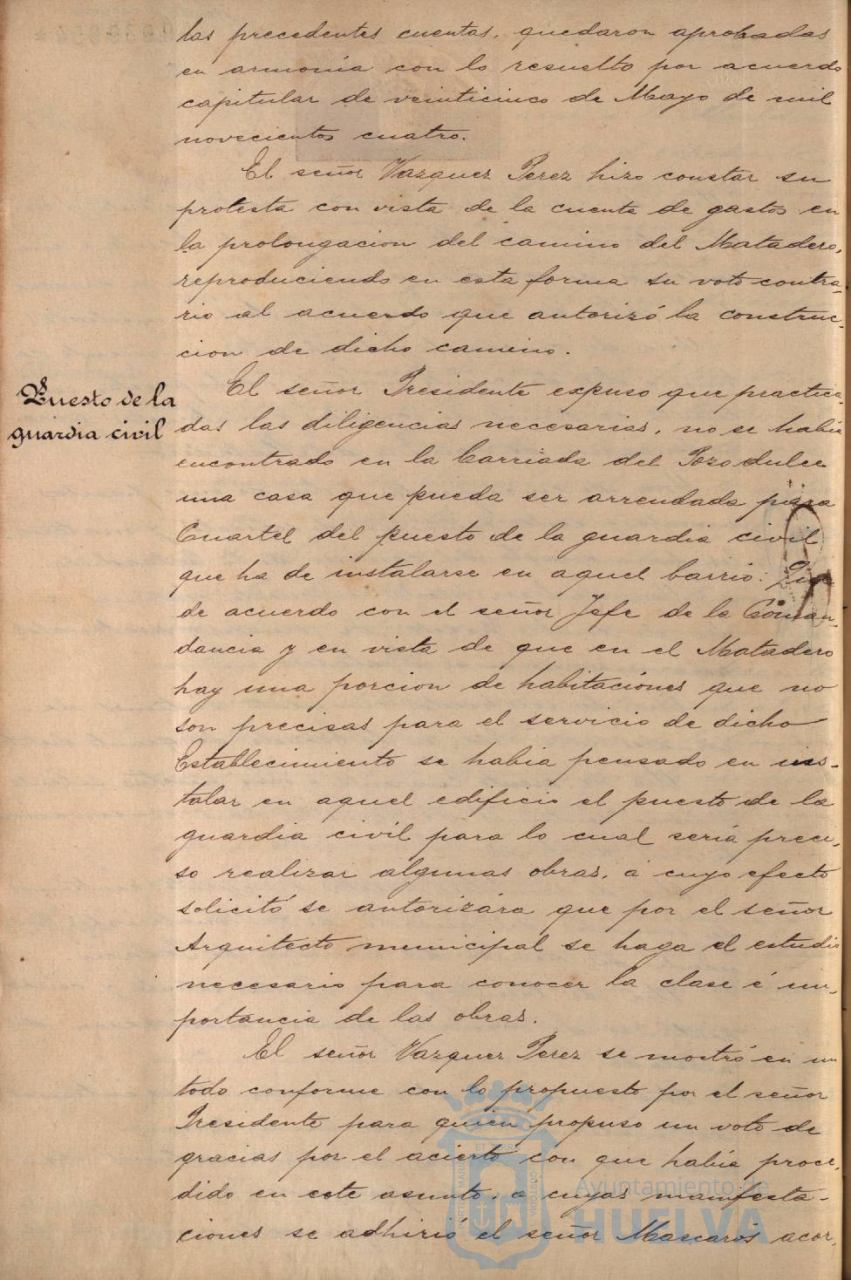 las precedentes cuentas, quedaron aprobadas
en armonía con lo resuelto por acuerdo
capitular de veinticinco de Mayo de mil
novecientos cuatro.
El señor Vazquez Perez hizo constar su
protesta con vista de la cuenta de gastos en
la prolongacion del camino del Matadero,
reproduciendo en esta forma su voto contra-
rio al acuerdo que autorizó la construc-
cion de dicho camino.
Puesto de la
guardia civil
El señor Presidente expuso que practica-
das las diligencias necesarias, no se habia
encontrado en la barriada del Pozo dulce
una casa que pueda ser arrendada para
Cuartel del puesto de la guardia civil
que ha de instalarse en aquel barrio: que
de acuerdo con el señor Jefe de la Coman-
dancia y en vista de que en el Matadero
hay una porcion de habitaciones que no
son precisas para el servicio de dicho
Establecimiento se habia pensado en ins-
talar en aquel edificio el puesto de la
guardia civil para lo cual sería preci-
so realizar algunas obras, á cuyo efecto
solicitó se autorizára que por el señor
Arquitecto municipal se haga el estudio
necesario para conocer la clase é im-
portancia de las obras.
El señor Vazquez Perez se mostró en un
todo conforme con lo propuesto por el señor
Presidente para quien propuso un voto de
gracias por el acierto con que habia proce-
dido en este asunto, a cuyas manifesta-
ciones se adhirió el señor Mascarós acor-
Ayuntamiento de
HUELVA